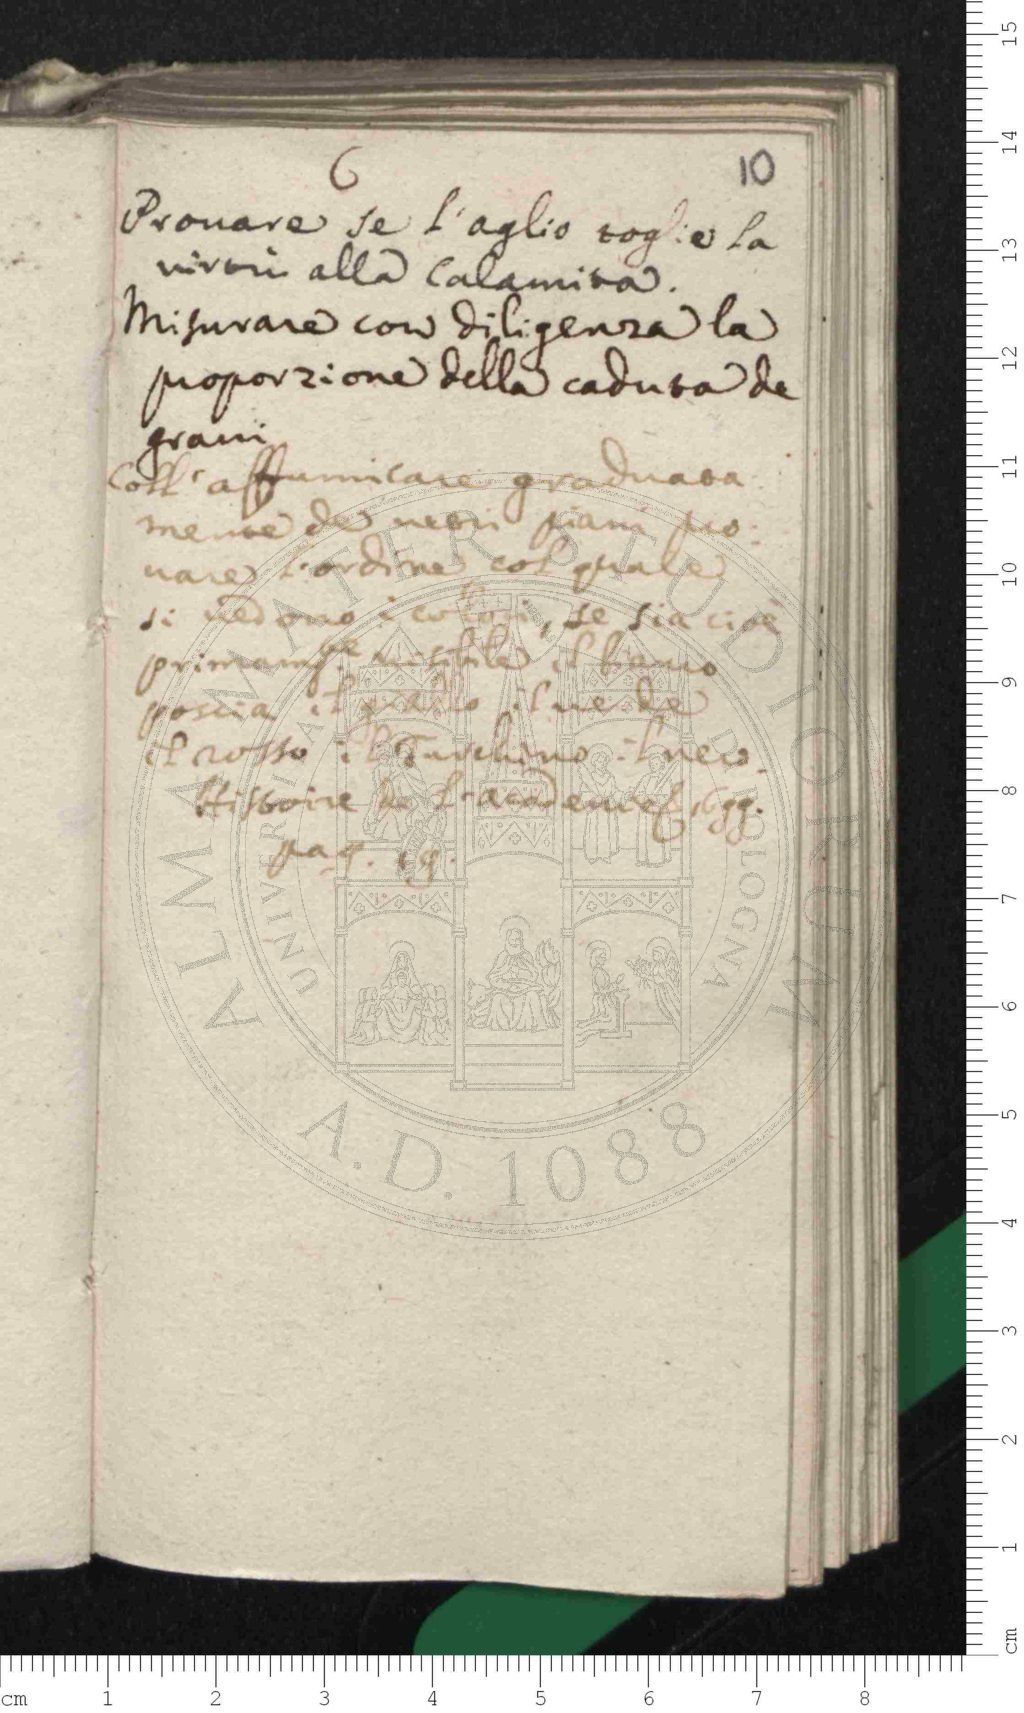 6
10
Prouare se l'aglio toglie la
uirtù alla Calamita.
Misurare con diligenza la
proporzione della caduta de
graui
Coll' affumicare graduata
mente de uetri piani pro:
uare l'ordine col quale
si uedono i colori, se sia cioè
primamte uisibile il bianco
poscia il giallo il uerde
il rosso il Turchino il nero.
Histoire de l'academie 1699.
pag. 19.
ALMA MATER STUDIORUM
UNIVERSITÀ DI BOLOGNA
A.D. 1088
15
14
13
12
11
10
9
8
7
6
5
4
3
2
1
cm
cm 1 2 3 4 5 6 7 8